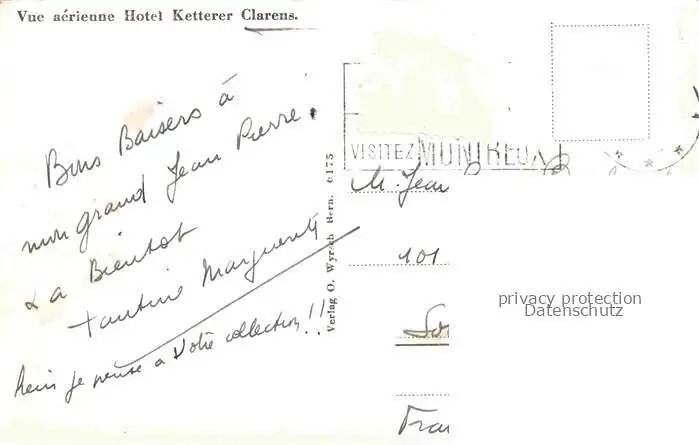 Vue aérienne Hotel Ketterer Clarens.
Bons Baisers à
mon grand Jean Pierre.
& a Bientot
tantine Marguerite
je pense a Votre collection !!
Verlag O. Wyrsch Bern. 6175
VISITEZ MONTREUX
M. Jean
101
privacy protection
Datenschutz